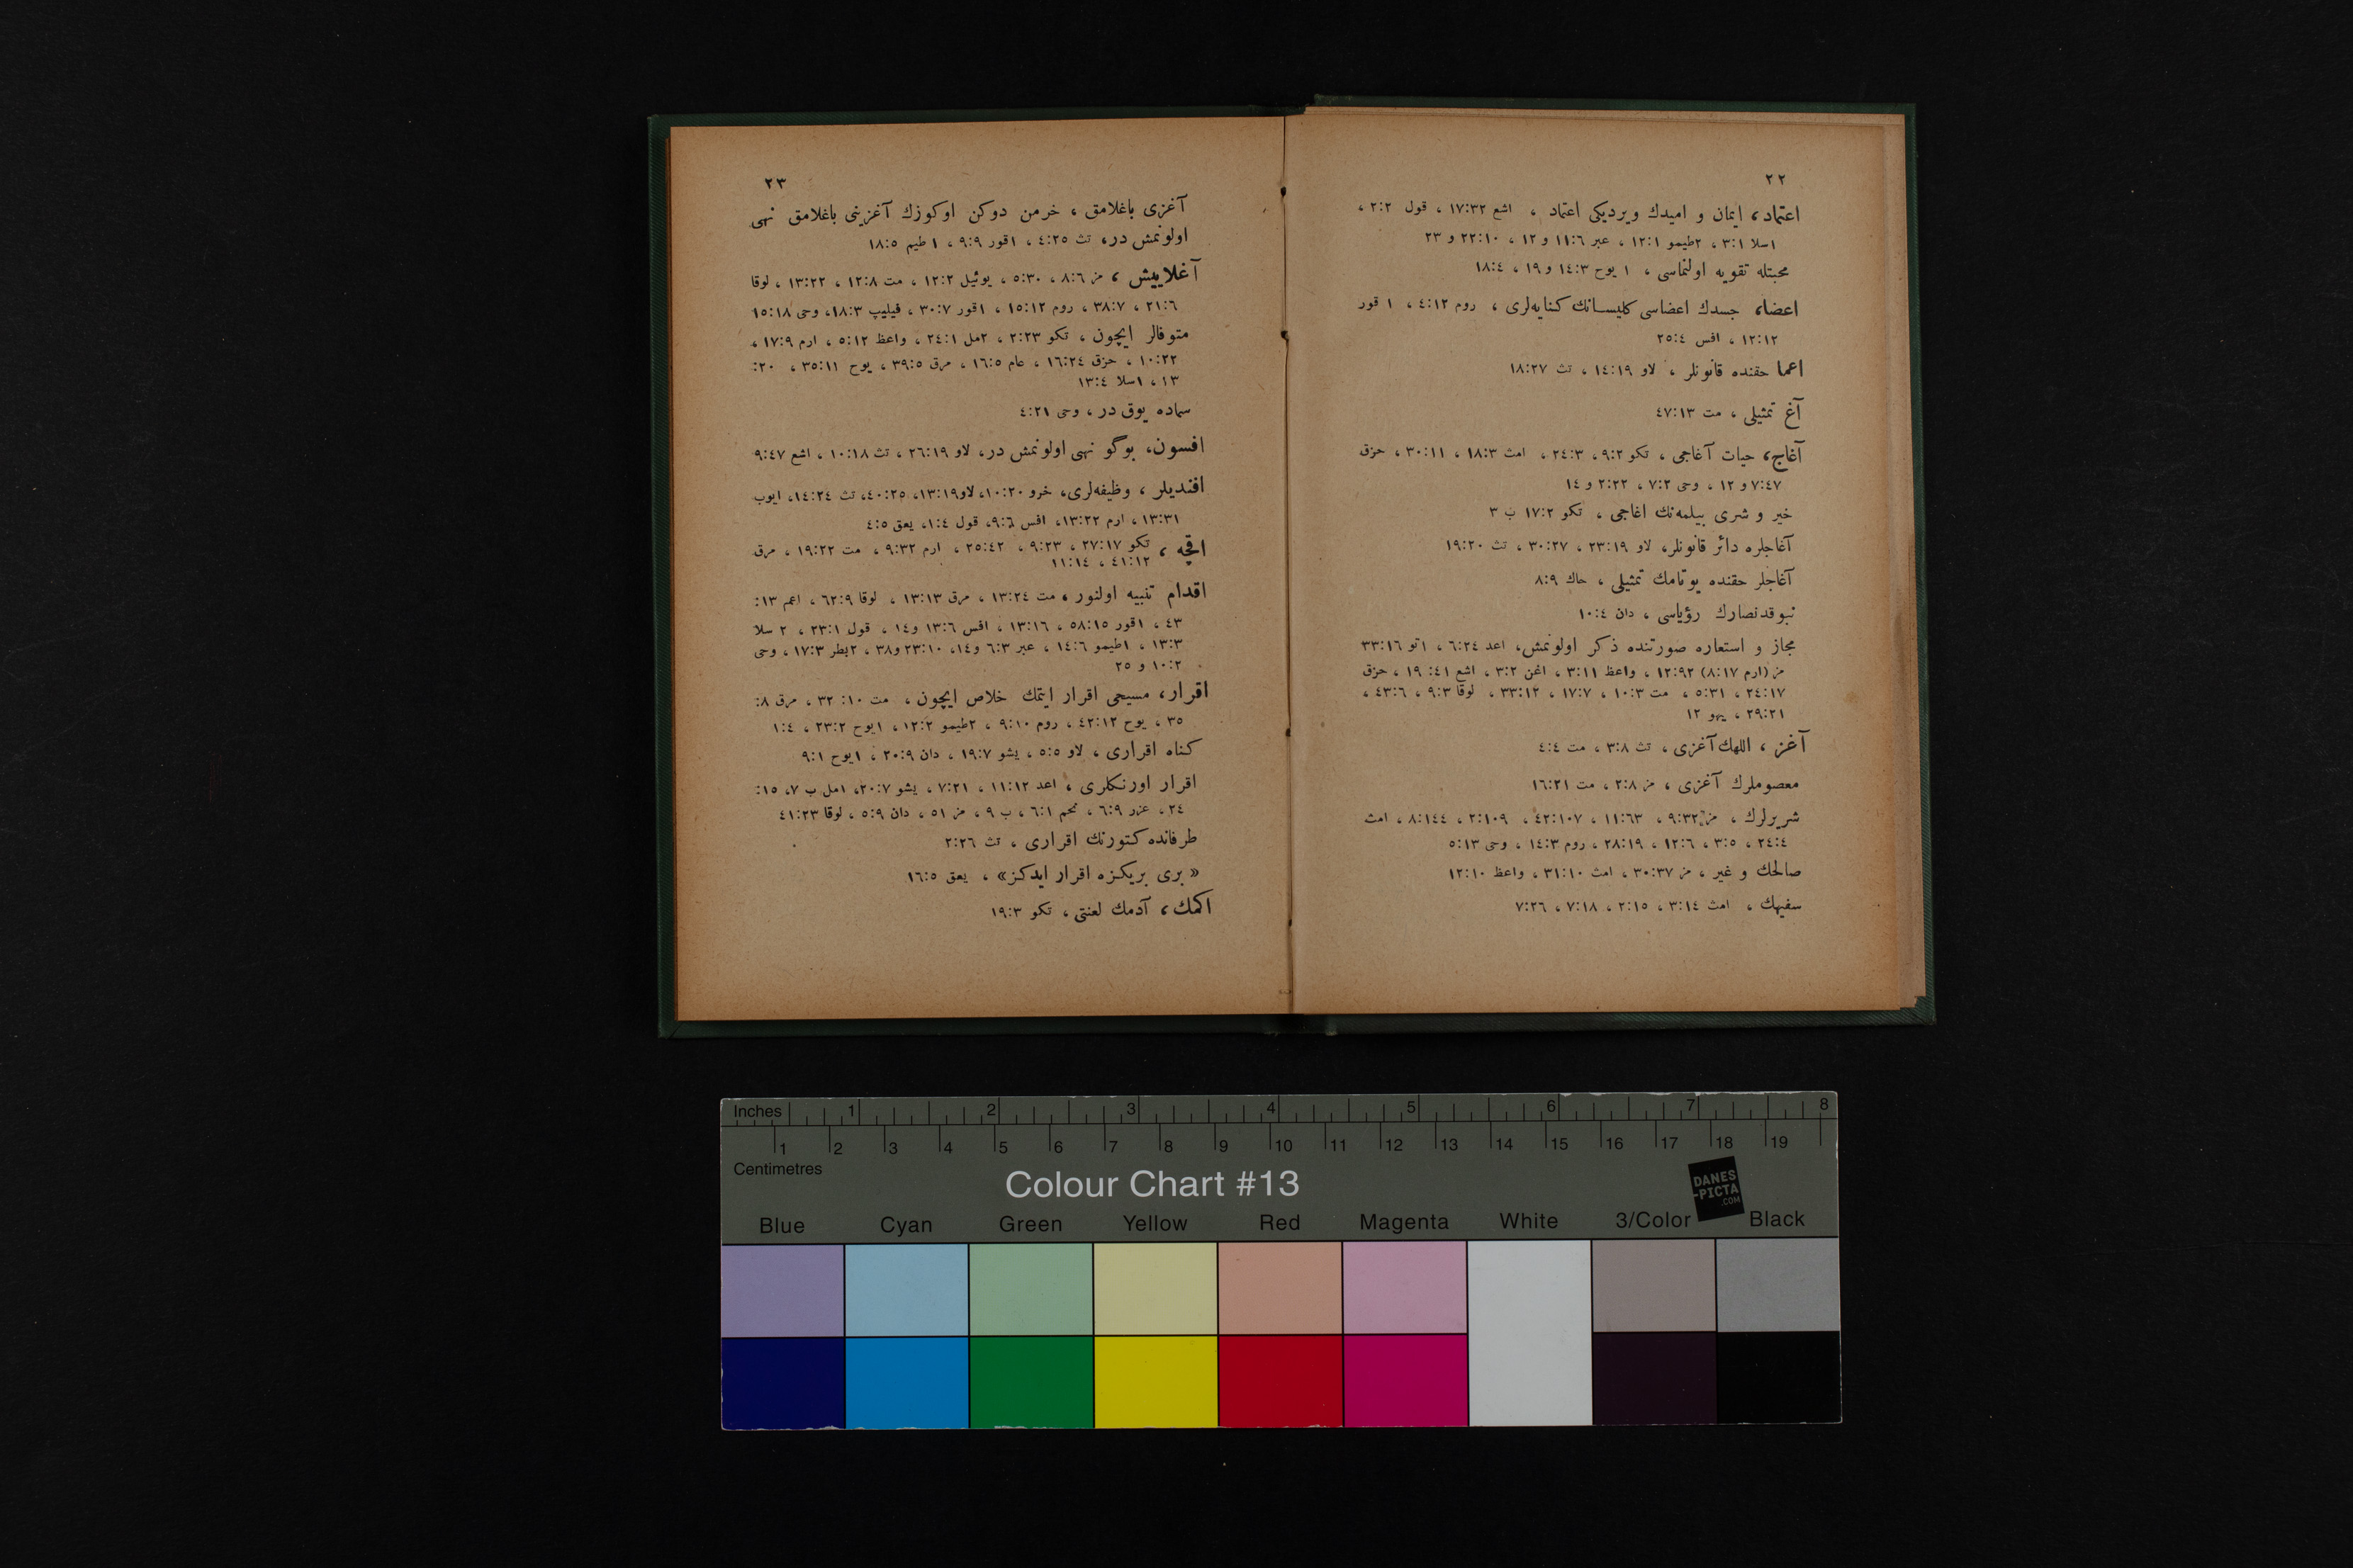 ٢٢
اعتماد، ایمان و امیدك ویردیكی اعتماد ، اشع ١٧:٣٢ ، قول ٢:٢ ،
١سلا ٣:١ ، ٢طیمو ١٢:١ ، عبر ١١:٦ و ١٢ ، ٢٢:١٠ و ٢٣
محبتله تقویه اولنماسی ، ١ یوح ١٤:٣ و ١٩ ، ١٨:٤
اعضا، جسدك اعضاسی كلیسانك كنایه‌لری ، روم ٤:١٢ ، ١ قور
١٢:١٢ ، افس ٢٥:٤
اعما حقنده قانونلر ، لاو ١٤:١٩ ، تث ١٨:٢٧
آغ تمثیلی ، مت ٤٧:١٣
آغاج، حیات آغاجی ، تكو ٩:٢ ، ٢٤:٣ ، امث ١٨:٣ ، ٣٠:١١ ، حزق
٧:٤٧ و ١٢ ، وحی ٧:٢ ، ٢:٢٢ و ١٤
خیر و شری بیلمه‌نك اغاجی ، تكو ١٧:٢ ب ٣
آغاجلره دائر قانونلر، لاو ٢٣:١٩ ، ٣٠:٢٧ ، تث ١٩:٢٠
آغاجلر حقنده یوتامك تمثیلی ، حاك ٨:٩
نبوقدنصارك رؤیاسی ، دان ١٠:٤
مجاز و استعاره صورتنده ذكر اولونمش، اعد ٦:٢٤ ، ١تو ٣٣:١٦
مز (ارم ٨:١٧) ١٢:٩٢ ، واعظ ٣:١١ ، اغن ٣:٢ ، اشع ٤١: ١٩ ، حزق
٢٤:١٧ ، ٥:٣١ ، مت ١٠:٣ ، ١٧:٧ ، ٣٣:١٢ ، لوقا ٩:٣ ، ٤٣:٦ ،
٢٩:٢١ ، یهو ١٢
آغز ، اللهك آغزی ، تث ٣:٨ ، مت ٤:٤
معصوملرك آغزی ، مز ٢:٨ ، مت ١٦:٢١
شریرلرك ، مز ٩:٣٢ ، ١١:٦٣ ، ٤٢:١٠٧ ، ٢:١٠٩ ، ٨:١٤٤ ، امث
٢٤:٤ ، ٣:٥ ، ١٢:٦ ، ٢٨:١٩ ، روم ١٤:٣ ، وحی ٥:١٣
صالحك و غیر ، مز ٣٠:٣٧ ، امث ٣١:١٠ ، واعظ ١٢:١٠
سفیهك ، امث ٣:١٤ ، ٢:١٥ ، ٧:١٨ ، ٧:٢٦
٢٣
آغزی باغلامق ، خرمن دوكن اوكوزك آغزینی باغلامق نهی
اولونمش در، تث ٤:٢٥ ، ١قور ٩:٩ ، ١ طیم ١٨:٥
آغلاییش ، مز ٨:٦ ، ٥:٣٠ ، یوئیل ١٢:٢ ، مت ١٢:٨ ، ١٣:٢٢ ، لوقا
٢١:٦ ، ٣٨:٧ ، روم ١٥:١٢ ، ١قور ٣٠:٧ ، فیلیپ ١٨:٣، وحی ١٥:١٨
متوفالر ایچون ، تكو ٢:٢٣ ، ٢مل ٢٤:١ ، واعظ ٥:١٢ ، ارم ١٧:٩ ،
١٠:٢٢ ، حزق ١٦:٢٤ ، عام ١٦:٥ ، مرق ٣٩:٥ ، یوح ٣٥:١١ ، ٢٠:
١٣ ، ١سلا ١٣:٤
سماده یوق در ، وحی ٤:٢١
افسون، بوگو نهی اولونمش در، لاو ٢٦:١٩ ، تث ١٠:١٨ ، اشع ٩:٤٧
افندیلر ، وظیفه‌لری، خرو ١٠:٢٠، لاو١٣:١٩، ٤٠:٢٥، تث ١٤:٢٤، ایوب
١٣:٣١ ، ارم ١٣:٢٢، افس ٩:٦، قول ١:٤، یعق ٤:٥
اقچه ، تكو ٢٧:١٧ ، ٩:٢٣ ، ٢٥:٤٢ ، ارم ٩:٣٢ ، مت ١٩:٢٢ ، مرق
٤١:١٢ ، ١١:١٤
اقدام تنبیه اولنور ، مت ١٣:٢٤ ، مرق ١٣:١٣ ، لوقا ٦٢:٩ ، اعم ١٣:
٤٣ ، ١قور ٥٨:١٥ ، ١٣:١٦ ، افس ١٣:٦ و١٤ ، قول ٢٣:١ ، ٢ سلا
١٣:٣ ، ١طیمو ١٤:٦ ، عبر ٦:٣ و١٤، ٢٣:١٠ و٣٨ ، ٢بطر ١٧:٣ ، وحی
١٠:٢ و ٢٥
اقرار، مسیحی اقرار ایتمك خلاص ایچون ، مت ١٠: ٣٢ ، مرق ٨:
٣٥ ، یوح ٤٢:١٢ ، روم ٩:١٠ ، ٢طیمو ١٢:٢ ، ١یوح ٢٣:٢ ، ١:٤
كناه اقراری ، لاو ٥:٥ ، یشو ١٩:٧ ، دان ٢٠:٩ ، ١یوح ٩:١
اقرار اورنكلری ، اعد ١١:١٢ ، ٧:٢١ ، یشو ٢٠:٧، ١مل ب ٧، ١٥:
٢٤ ، عزر ٦:٩ ، نحم ٦:١ ، ب ٩ ، مز ٥١ ، دان ٥:٩ ، لوقا ٤١:٢٣
طرفانده كتورنك اقراری ، تث ٢:٢٦
« بری بریكزه اقرار ایدكز» ، یعق ١٦:٥
اكمك، آدمك لعنتی ، تكو ١٩:٣
Inches 1 2 3 4 5 6 7 8
1 2 3 4 5 6 7 8 9 10 11 12 13 14 15 16 17 18 19
Centimetres
Colour Chart #13
DANES
-PICTA
.COM
Blue Cyan Green Yellow Red Magenta White 3/Color Black